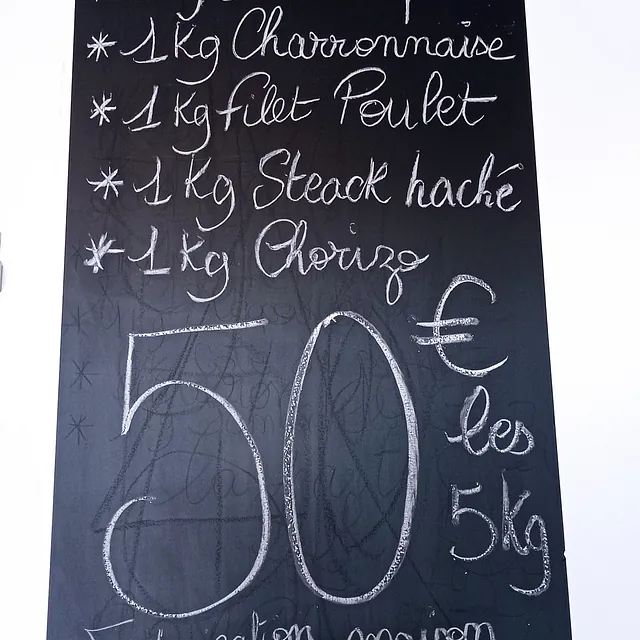 * 1 Kg Charronnaise
* 1 Kg filet Poulet
* 1 Kg Steack haché
* 1 Kg Chorizo
50 € les 5 Kg